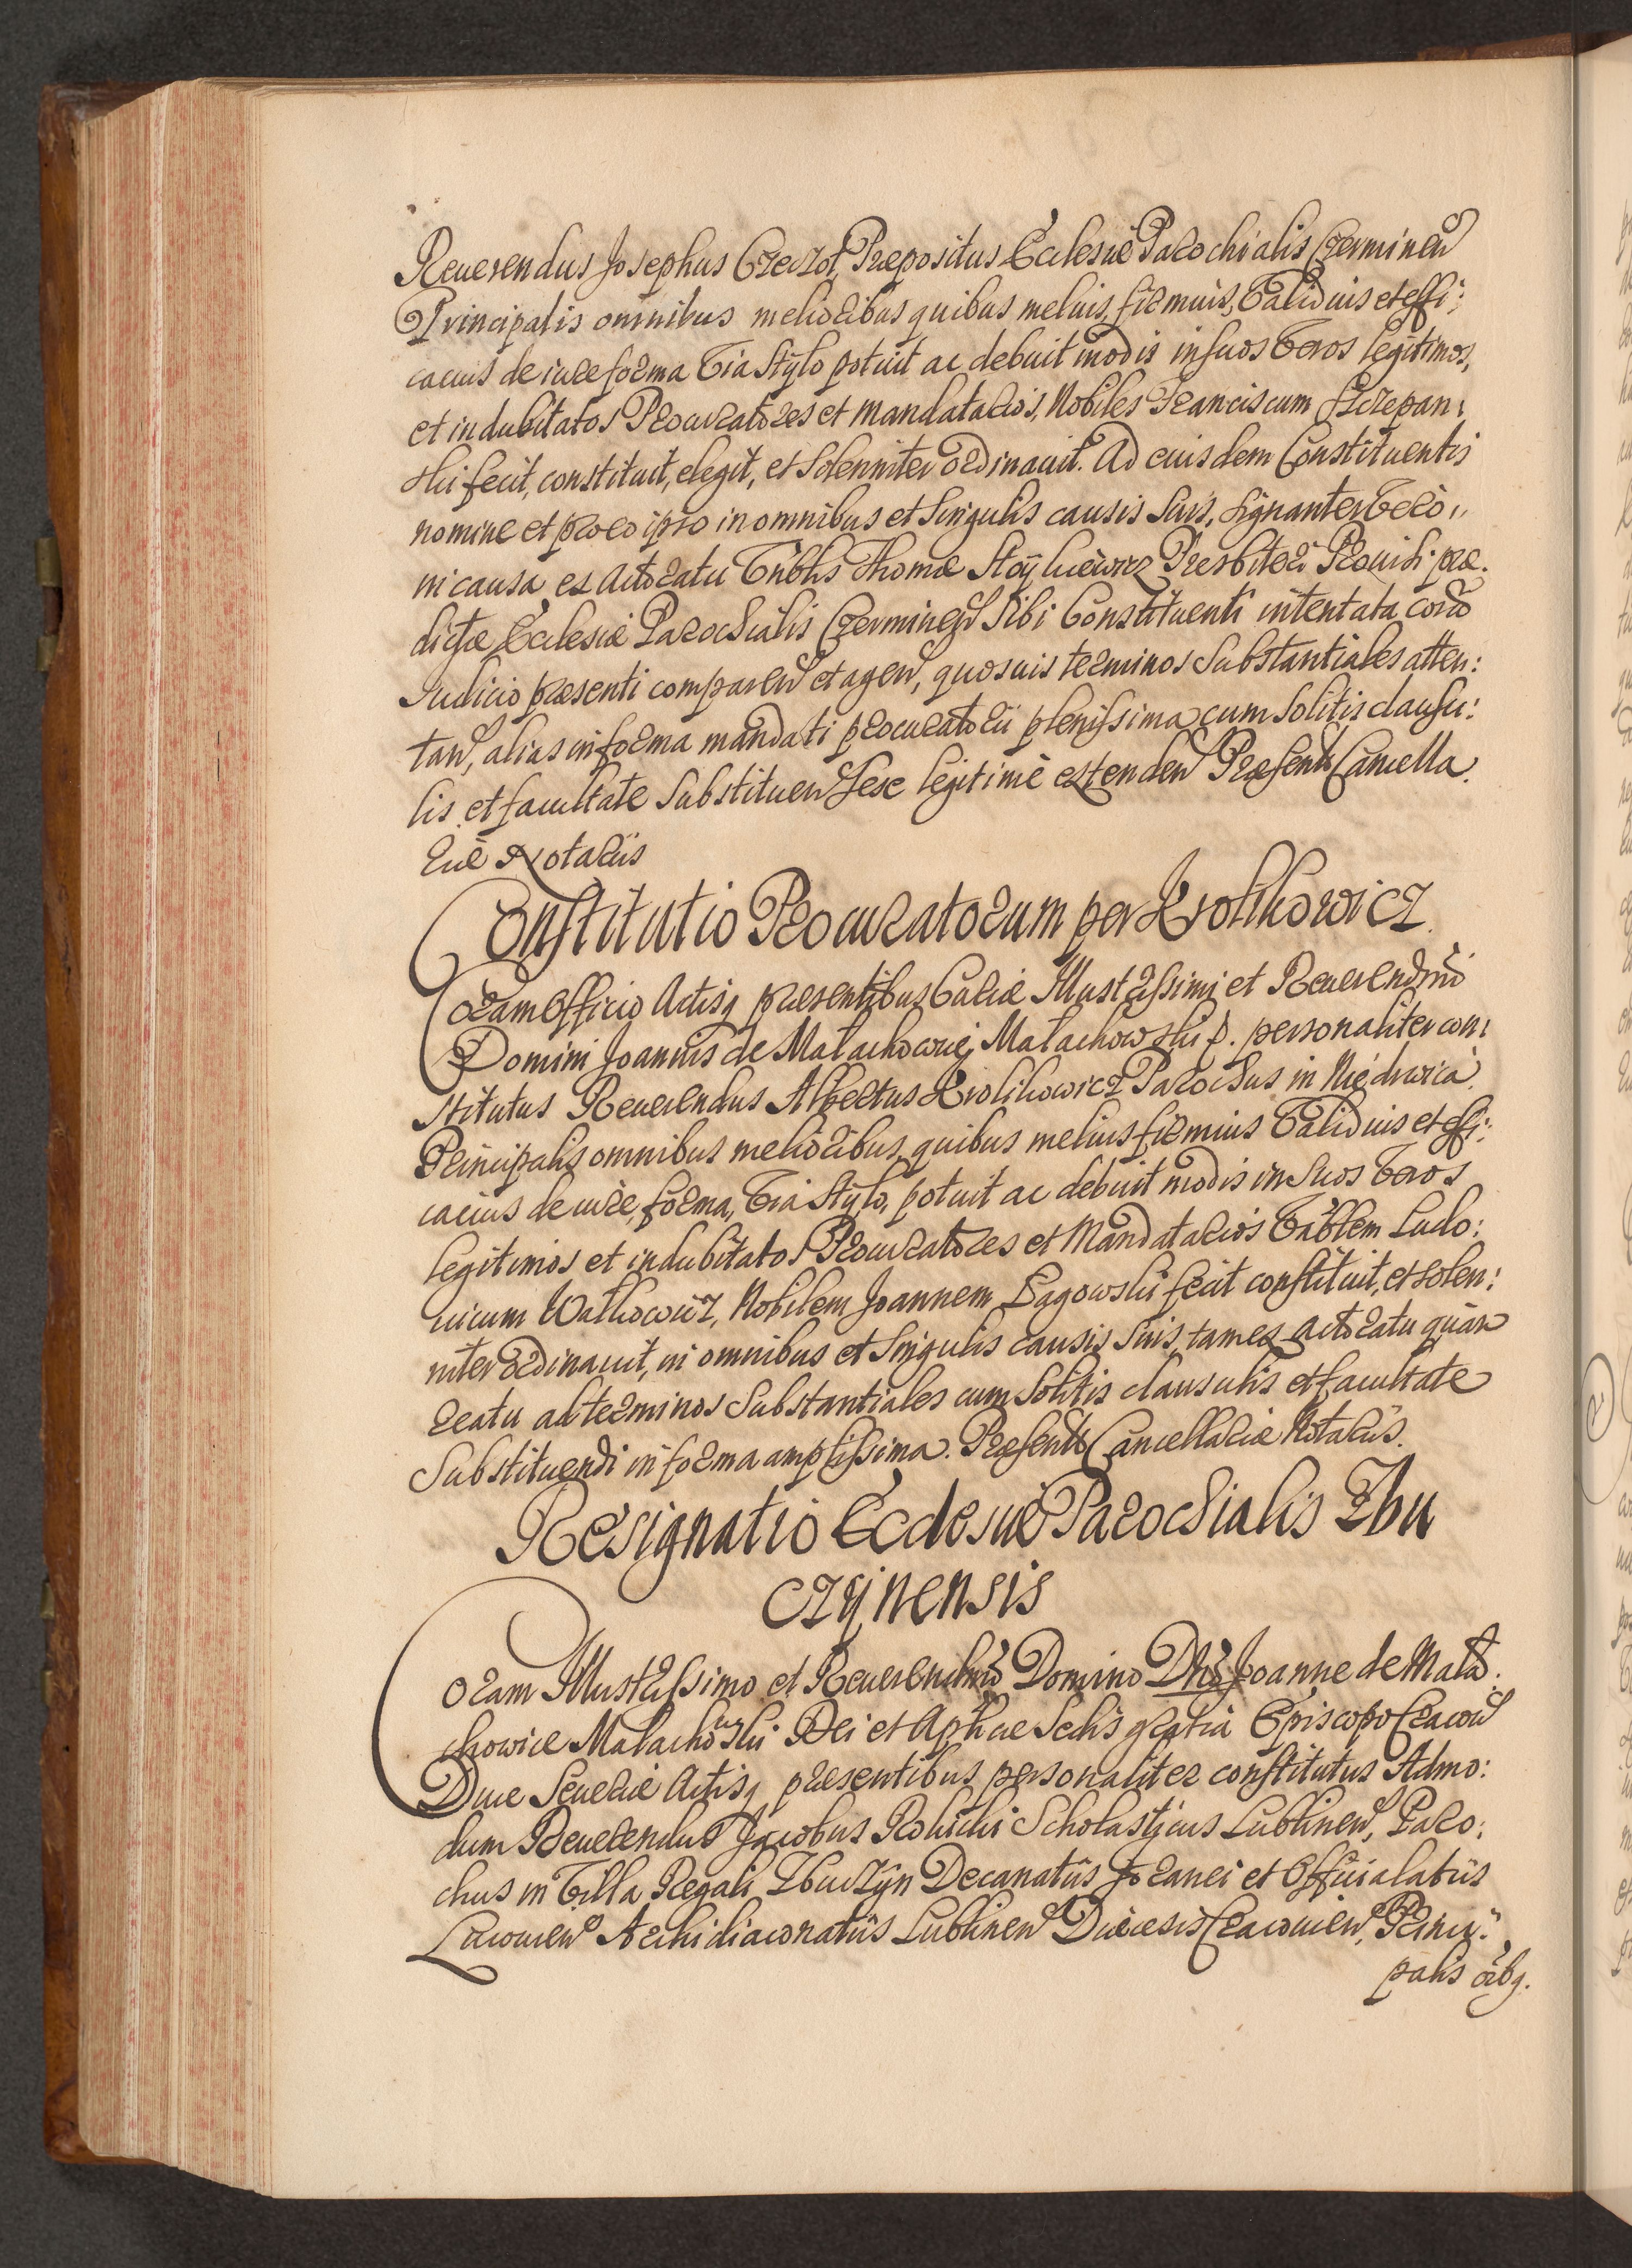 Reuerendus Josephus Czeczot, Præpositus Ecclesiæ Parochialis Czerminen
Principalis omnibus melioribus quibus melius, firmius, Validius et effi:
cacius de iure forma Via Stylo potuit ac debuit modis in suos Veros legitimos,
et indubitatos Procuratores et mandatarios, Nobiles Franciscum Szczepan:
ski fecit, constituit, elegit, et Solenniter ordinauit. Ad eiusdem Constituentis
nomine et pro eo ipso in omnibus et Singulis causis Suis, Signanter Vero
in causa ex actoratu Vnblis Thomæ Prezbiteri Prouisi præ:
dictæ Ecclesiæ Parochialis Czerminen Sibi Constituenti intentata, corã
Iudicio præsenti comparen et agen, quosuis terminos Substantiales atten:
tan, alias in forma mandati procuratorii plenissima cum Solitis clausu:
lis et facultate Substituen sese legitimè extenden Præsent Cancella
riæ Notariis
Constitutio Procuratorum per Krolikowicz
Coram Officio Actisq præsentibus Curiæ Illustrissimi et Reuerendmi
Domini Joannis de Małachowice Małachowski p. personaliter con:
stitutus Reuerendus Albertus Krolikowicz Parochus in Niedrwica
Principalis omnibus melioribus, quibus melius firmius Validius et effi:
cacius de iure, forma, Via Stylo, potuit ac debuit modis in Suos Veros
legitimos et indubitatos Procuratores et Mandatarios Vnblem Ludo:
uicum Walkowicz, Nobilem Joannem Łagowski fecit constituit, et solen:
niter ordinauit, in omnibus et Singulis causis Suis, tam ex actoratu quàm
reatu ad terminos Substantiales cum Solitis clausulis et facultate
Substituendi in forma amplissima. Præsent Cancellariæ Notariis.
Resignatio Ecclesiæ Parochialis Zbu
czynensis
Coram Illustrissimo et Reuerendmo Domino Dno Joanne de Mała
chowice Małachowski Dei et Aplicæ Sedis gratia Episcopo Cracouien
Duce Seueriæ Actisq præsentibus personaliter constitutus Admo:
dum Reuerendus Jacobus Scholasticus Lublinen, Paro:
chus in Villa Regali Zbuczyn Decanatûs et Officialatûs
Lucouien Archidiaconatûs Lublinen Diæcesis Cracouien, Princi:
palis oibq.